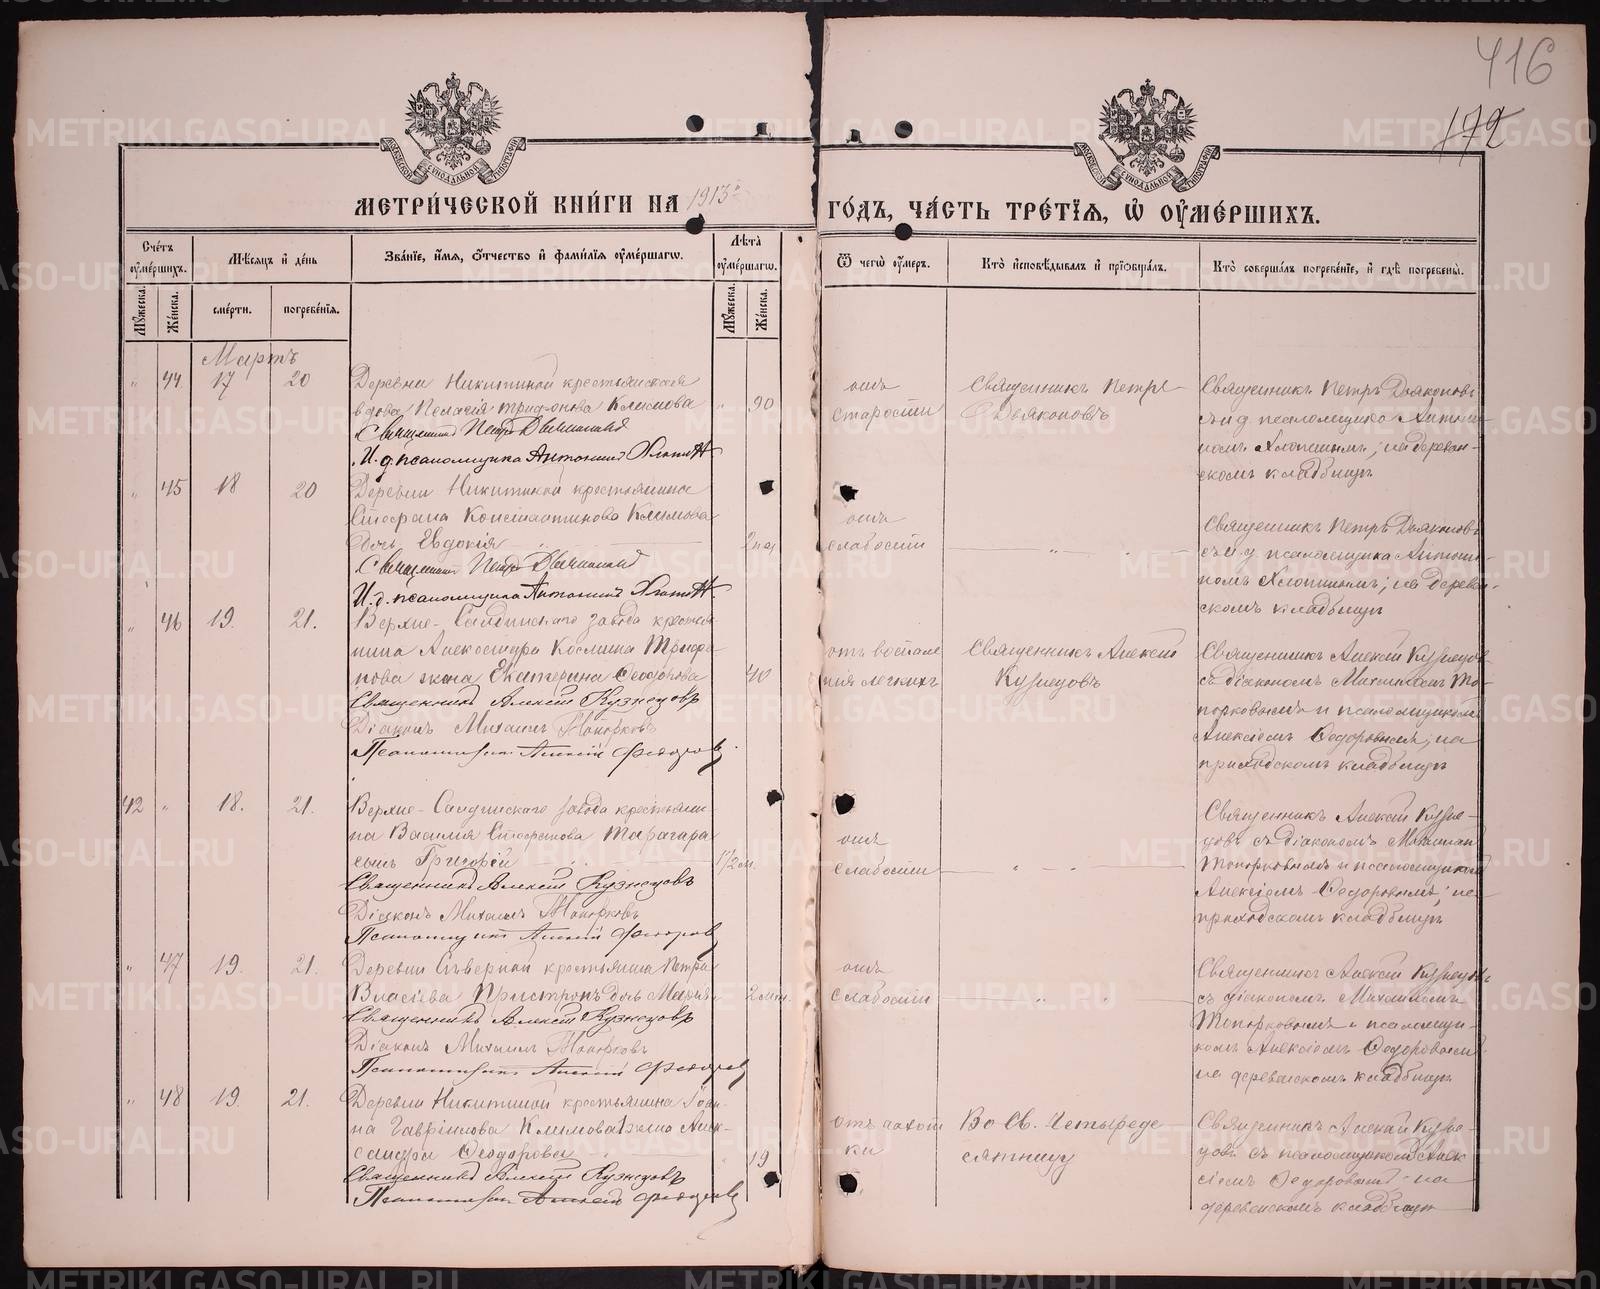 416
172
МЕТРИ́ЧЕСКОЙ КНИ́ГИ НА 1913й ГО́ДЪ, ЧА́СТЬ ТРЕ́ТЇЯ, Ѡ ОУ҆МЕ́РШИХЪ.
Сче́тъ оу҆ме́ршихъ.
Мѣсяцъ и де́нь
Зва́нїе, и҆́мя, ѻ҆́тчество и҆ фами́лїя оу҆ме́ршагѡ.
Лѣта̀ оу҆ме́ршагѡ.
Ѿ чегѡ̀ оу҆́меръ.
Кто̀ и҆сповѣ́дывалъ и҆ прїѡбща́лъ.
Кто̀ соверша́лъ погребе́нїе, и҆ гдѣ̀ погребены̀.
Му́жеска.
Же́нска.
сме́рти.
погребе́нїя.
Му́жеска.
Же́нска.
Мартъ
" 44 17 20
Деревни Никитиной крестьянская
вдова Пелагія Трифонова Климова " 90
Священникъ Петръ Дьяконовъ
И. д. псаломщика Антонинъ Хлопинъ
отъ
старости
Священникъ Петръ
Дьяконовъ
Священникъ Петръ Дьяконовъ
съ и д псаломщика Антони-
номъ Хлопинымъ; на деревен-
скомъ кладбищѣ
" 45 18 20
Деревни Никитиной крестьянина
Стефана Константинова Климова
дочь Евдокія 2 нед
Священникъ Петръ Дьяконовъ
И. д. псаломщика Антонинъ Хлопинъ
отъ
слабости
Священникъ Петръ Дьяконовъ
съ и д псаломщика Антони-
номъ Хлопинымъ; на деревен-
скомъ кладбищѣ
" 46 19. 21.
Верхне-Салдинскаго завода крестья-
нина Александра Космина Трифо-
нова жена Екатерина Ѳеодорова 40
Священникъ Алексій Кузнецовъ
Діаконъ Михаилъ Топорковъ
Псаломщикъ Алексій Ѳедоровъ
отъ воспале
нія легкихъ
Священникъ Алексій
Кузнецовъ
Священникъ Алексій Кузнецовъ
съ діакономъ Михаиломъ То-
порковымъ и псаломщикомъ
Алексіемъ Ѳедоровымъ; на
приходскомъ кладбищѣ
42 " 18. 21.
Верхне-Салдинскаго завода крестьяни-
на Василія Стефанова
сынъ Григорій 1½ м.
Священникъ Алексій Кузнецовъ
Діаконъ Михаилъ Топорковъ
Псаломщикъ Алексій Ѳедоровъ
отъ
слабости
Священникъ Алексій Кузне-
цовъ съ діакономъ Михаиломъ
Топорковымъ и псаломщикомъ
Алексіемъ Ѳедоровымъ; на
приходскомъ кладбищѣ
" 47 19. 21.
Деревни Сѣверной крестьянина Петра
Власіева дочь Марія 2 мѣс.
Священникъ Алексій Кузнецовъ
Діаконъ Михаилъ Топорковъ
Псаломщикъ Алексій Ѳедоровъ
отъ
слабости
Священникъ Алексій Кузнецовъ
съ діакономъ Михаиломъ
Топорковымъ и псаломщи-
комъ Алексіемъ Ѳедоровымъ
на деревенскомъ кладбищѣ
" 48 19. 21.
Деревни Никитиной крестьянина Іоан-
на Гавріилова Климова жена Алек-
сандра Ѳеодорова 19
Священникъ Алексій Кузнецовъ
Псаломщикъ Алексій Ѳедоровъ
отъ чахот
ки
Во Св. Четыреде
сятницу
Священникъ Алексій Кузне-
цовъ съ псаломщикомъ Алек
сіемъ Ѳедоровымъ на
деревенскомъ кладбищѣ
METRIKI.GASO-URAL.RU